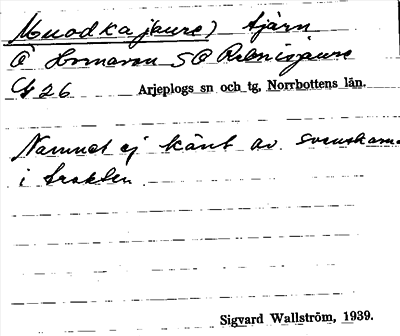 Muodkajaure) tjärn
Ö Hornavan SO Rebnisjaure
G 26 Arjeplogs sn och tg, Norrbottens län.
Namnet ej känt av svenskarna
i trakten.
Sigvard Wallström, 1939.